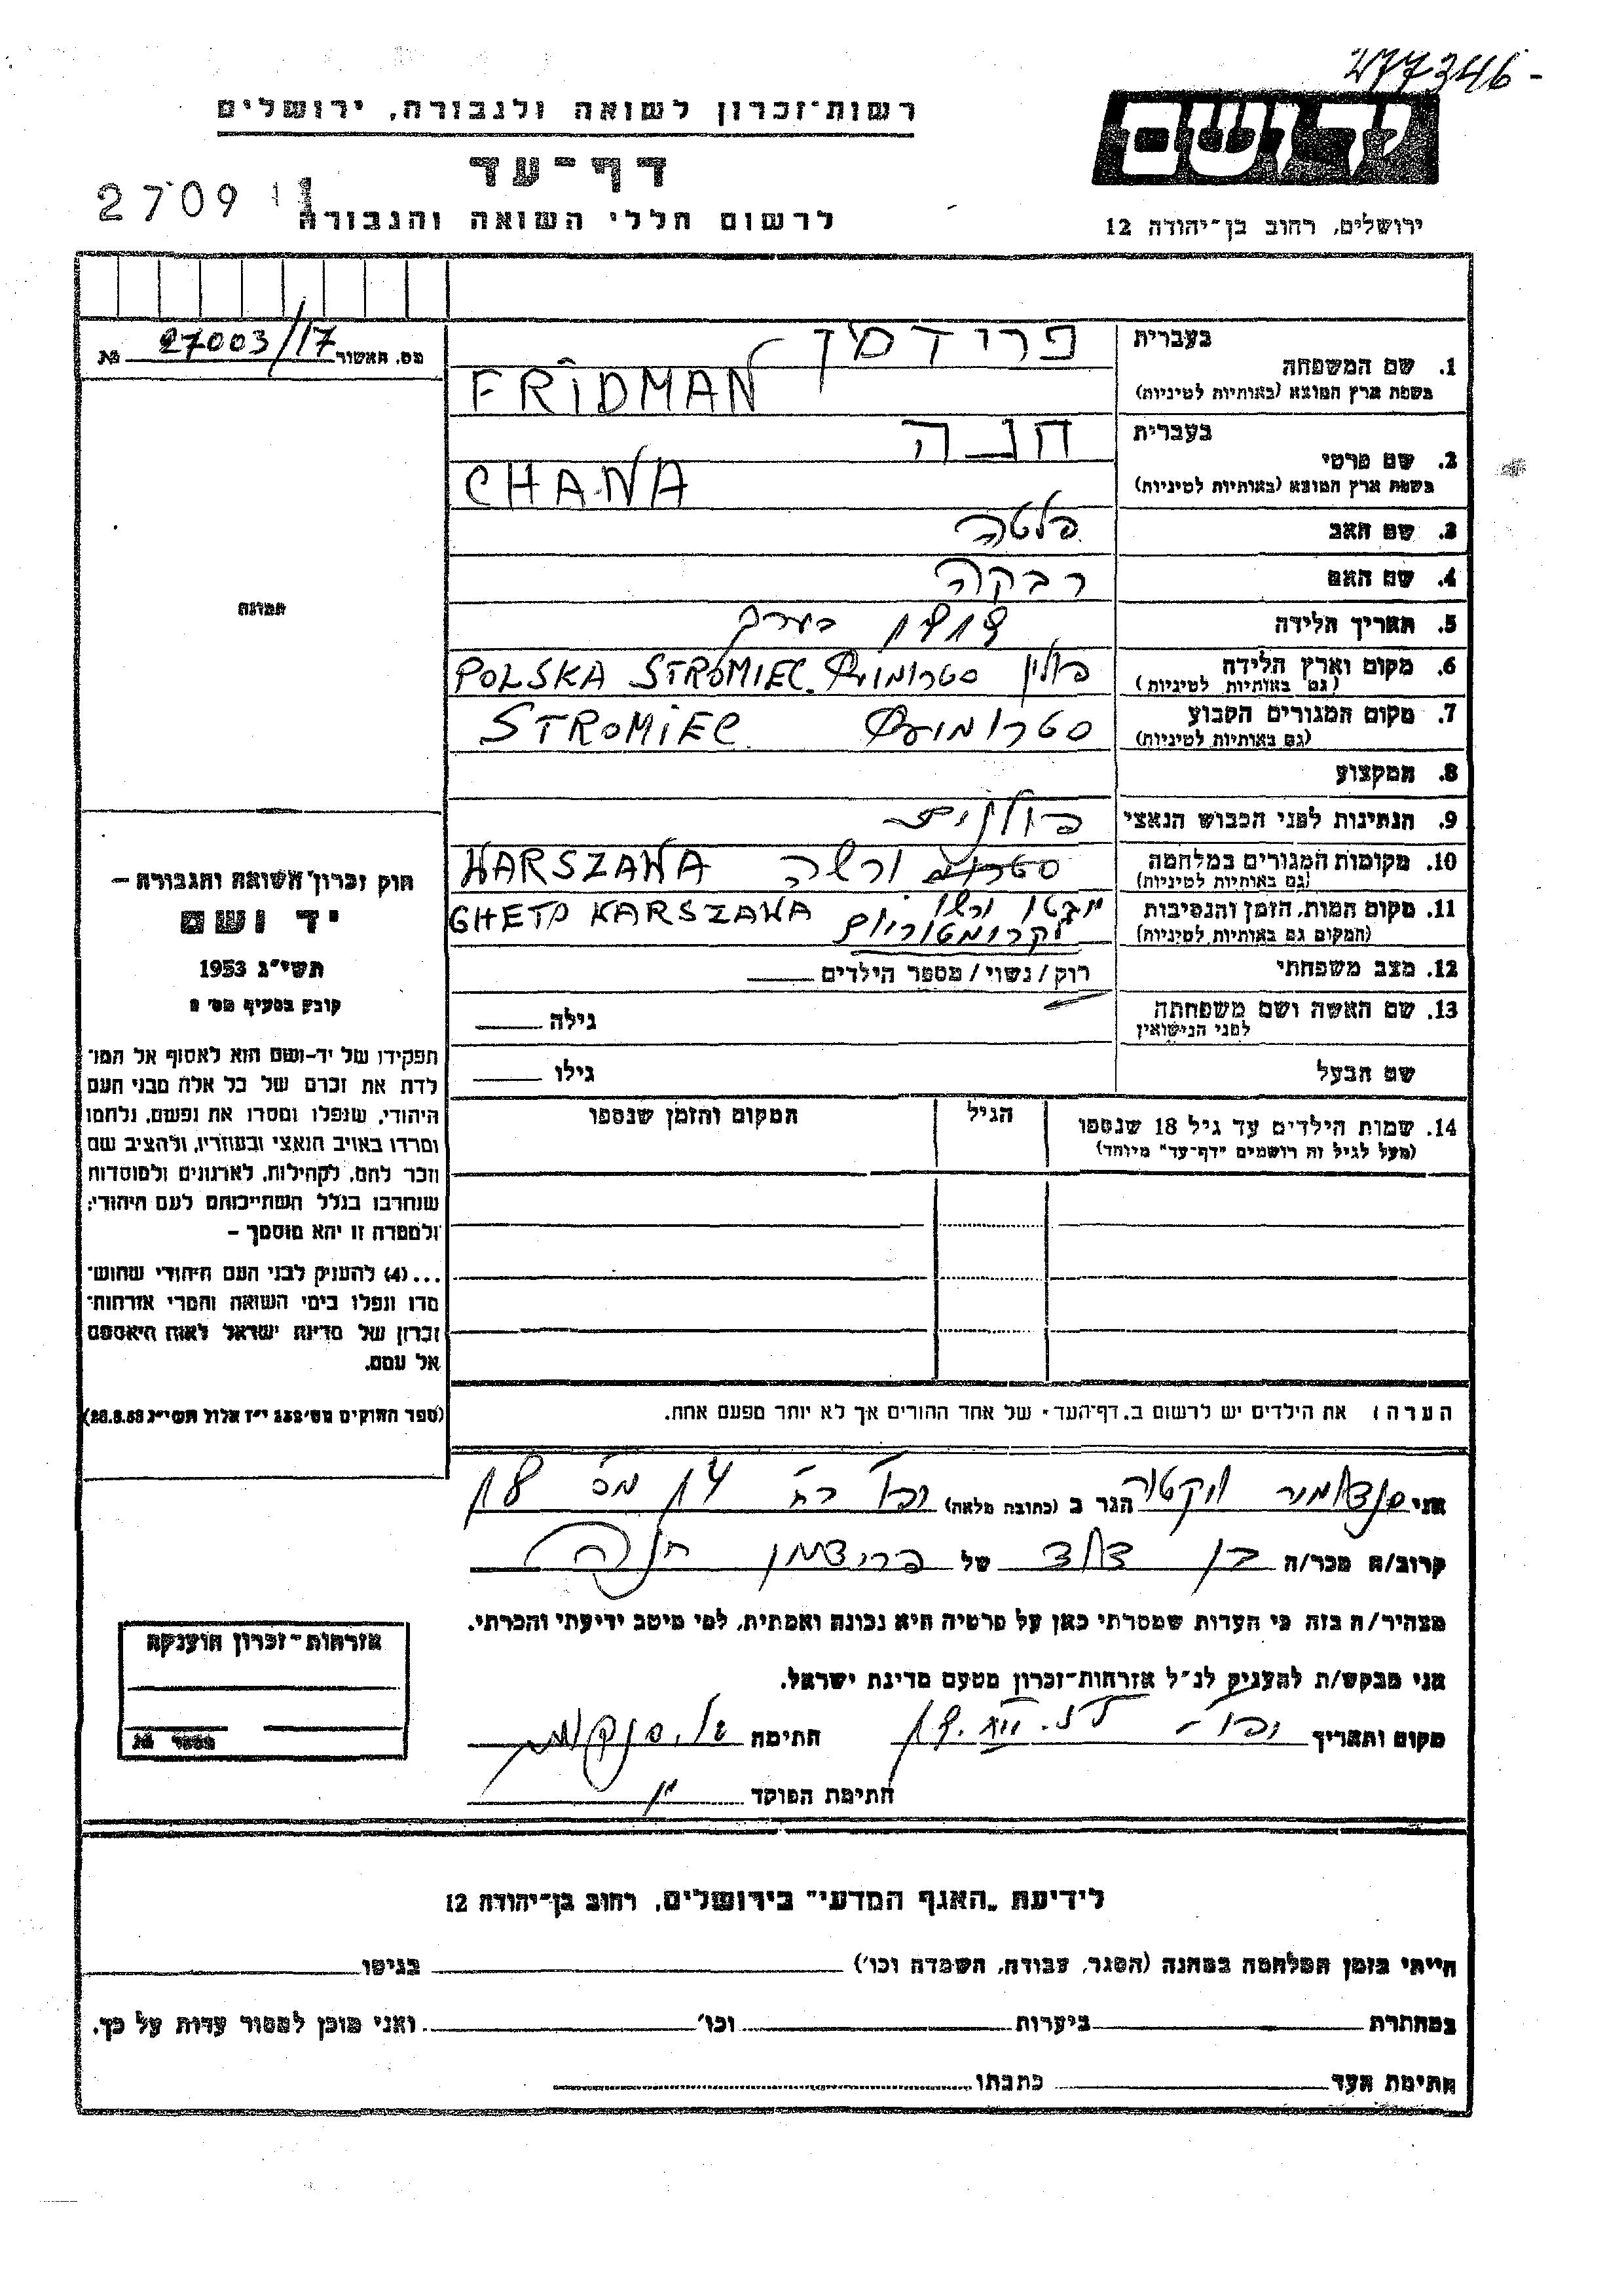 277346-
רשות־זכרון לשואה ולגבורה, ירושלים
יד ושם
דף־עד
2709
לרשום חללי השואה והגבורה
ירושלים, רחוב בן־יהודה 12
מס. האשור 27003/17
בעברית פרידמן
1. שם המשפחה
בשפת ארץ המוצא (באותיות לטיניות) FRIDMAN
בעברית חנה
2. שם פרטי
בשפת ארץ המוצא (באותיות לטיניות) CHANA
3. שם האב פלטה
4. שם האם רבקה
תמונה
5. תאריך הלידה בערך
6. מקום וארץ הלידה פולין POLSKA STROMIEC
(גם באותיות לטיניות)
7. מקום המגורים הקבוע STROMIEC
(גם באותיות לטיניות)
8. המקצוע
9. הנתינות לפני הכבוש הנאצי פולנית
10. מקומות המגורים במלחמה ורשה WARSZAWA
(גם באותיות לטיניות)
11. מקום המות, הזמן והנסיבות GHETO WARSZAWA
(המקום גם באותיות לטיניות) לקרומטוריום
12. מצב משפחתי רוק / נשוי / מספר הילדים
13. שם האשה ושם משפחתה גילה
לפני הנישואין
שם הבעל גילו
14. שמות הילדים עד גיל 18 שנספו הגיל המקום והזמן שנספו
(מעל לגיל זה רושמים "דף־עד" מיוחד)
חוק זכרון השואה והגבורה –
יד ושם
תשי"ג 1953
קובע בסעיף מס'
תפקידו של יד-ושם הוא לאסוף אל המו־
לדת את זכרם של כל אלה מבני העם
היהודי, שנפלו ומסרו את נפשם, נלחמו
ומרדו באויב הנאצי ובעוזריו, ולהציב שם
וזכר להם, לקהילות, לארגונים ולמוסדות
שנחרבו בגלל השתייכותם לעם היהודי;
ולמטרה זו יהא מוסמך –
...(4) להעניק לבני העם היהודי שהוש־
מדו ונפלו בימי השואה והמרי אזרחות־
זכרון של מדינת ישראל לאות היאספם
אל עמם.
(ספר החוקים מס' 132 י"ז אלול תשי"ג 28.8.53)
הערה: את הילדים יש לרשום ב„דף־העד" של אחד ההורים אך לא יותר מפעם אחת.
אני הגר ב (כתובת מלאה)
קרוב/ה מכר/ה בן דוד של פרידמן חנה
מצהיר/ה בזה כי העדות שמסרתי כאן על פרטיה היא נכונה ואמתית, לפי מיטב ידיעתי והכרתי.
אני מבקש/ת להעניק לנ"ל אזרחות־זכרון מטעם מדינת ישראל.
מקום ותאריך חתימה
חתימת הפוקד
אזרחות־זכרון הוענקה
לידיעת „האגף המדעי" בירושלים, רחוב בן־יהודה 12
הייתי בזמן המלחמה במחנה (הסגר, עבודה, השמדה וכו') בגיטו
במחתרת ביערות וכו' ואני מוכן למסור עדות על כך.
חתימת העד כתבתו